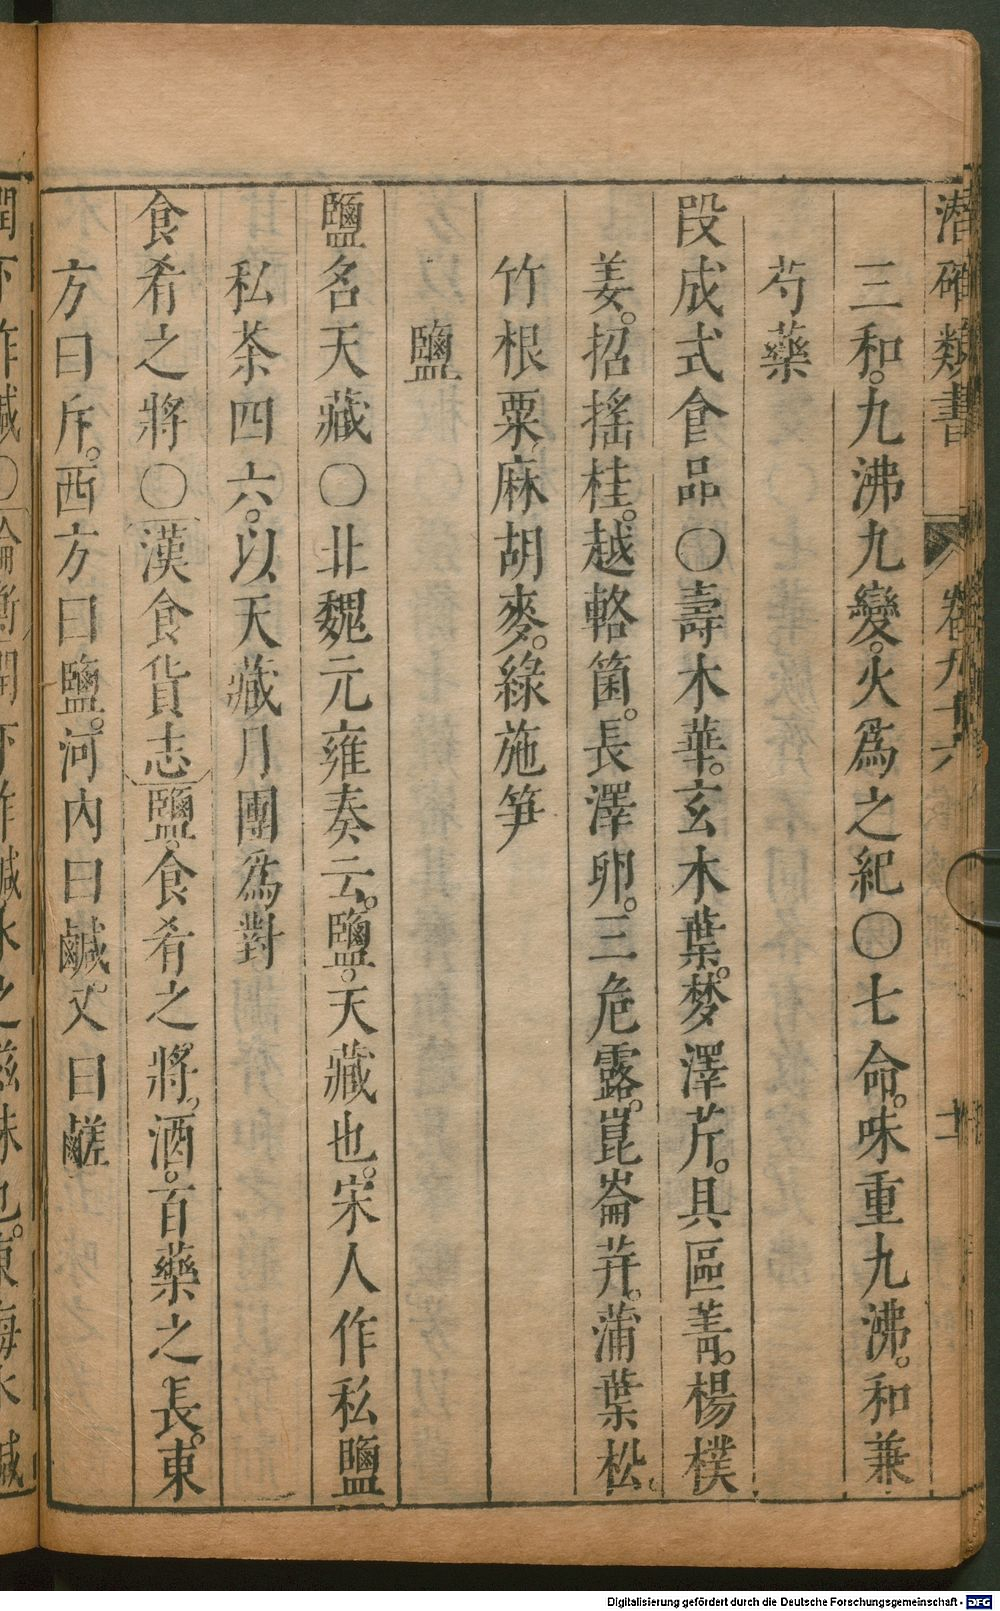 潜確類書 卷九十六 十
三和。九沸九變。火爲之紀〇七命。味重九沸。和兼
芍藥
段成式食品〇壽木華。玄木葉。梦澤芹。具區菁。楊樸
姜。招搖桂。越輅箘。長澤卵。三危露。崑崙井。蒲葉松。
竹根粟。麻胡麥。綠施笋
鹽
鹽名天藏〇北魏元雍奏云。鹽。天藏也。宋人作私鹽
私茶四六。以天藏月團爲對
食肴之將〇漢食貨志鹽。食肴之將。酒。百藥之長。東
方曰斥。西方曰鹽。河內曰鹹。又曰鹺
Digitalisierung gefördert durch die Deutsche Forschungsgemeinschaft - DFG